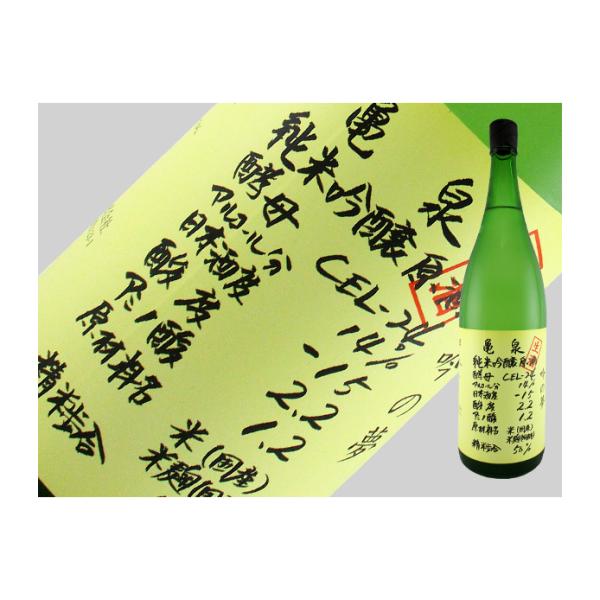 亀 泉
純米吟醸原
酵母 CEL-24
アルコール分 14%
日本酒度 -15
酸度 2.2
アミノ酸 1.2
原材料名 米(国産)
米麹(国
精米歩合
吟の夢
亀 泉
純米吟醸原酒
酵母 CEL-24
アルコール分 14%
日本酒度 -15
酸度 2.2
アミノ酸 1.2
原材料名 米(国産)
米麹(国産米)
精米歩合 50%
吟の夢
生